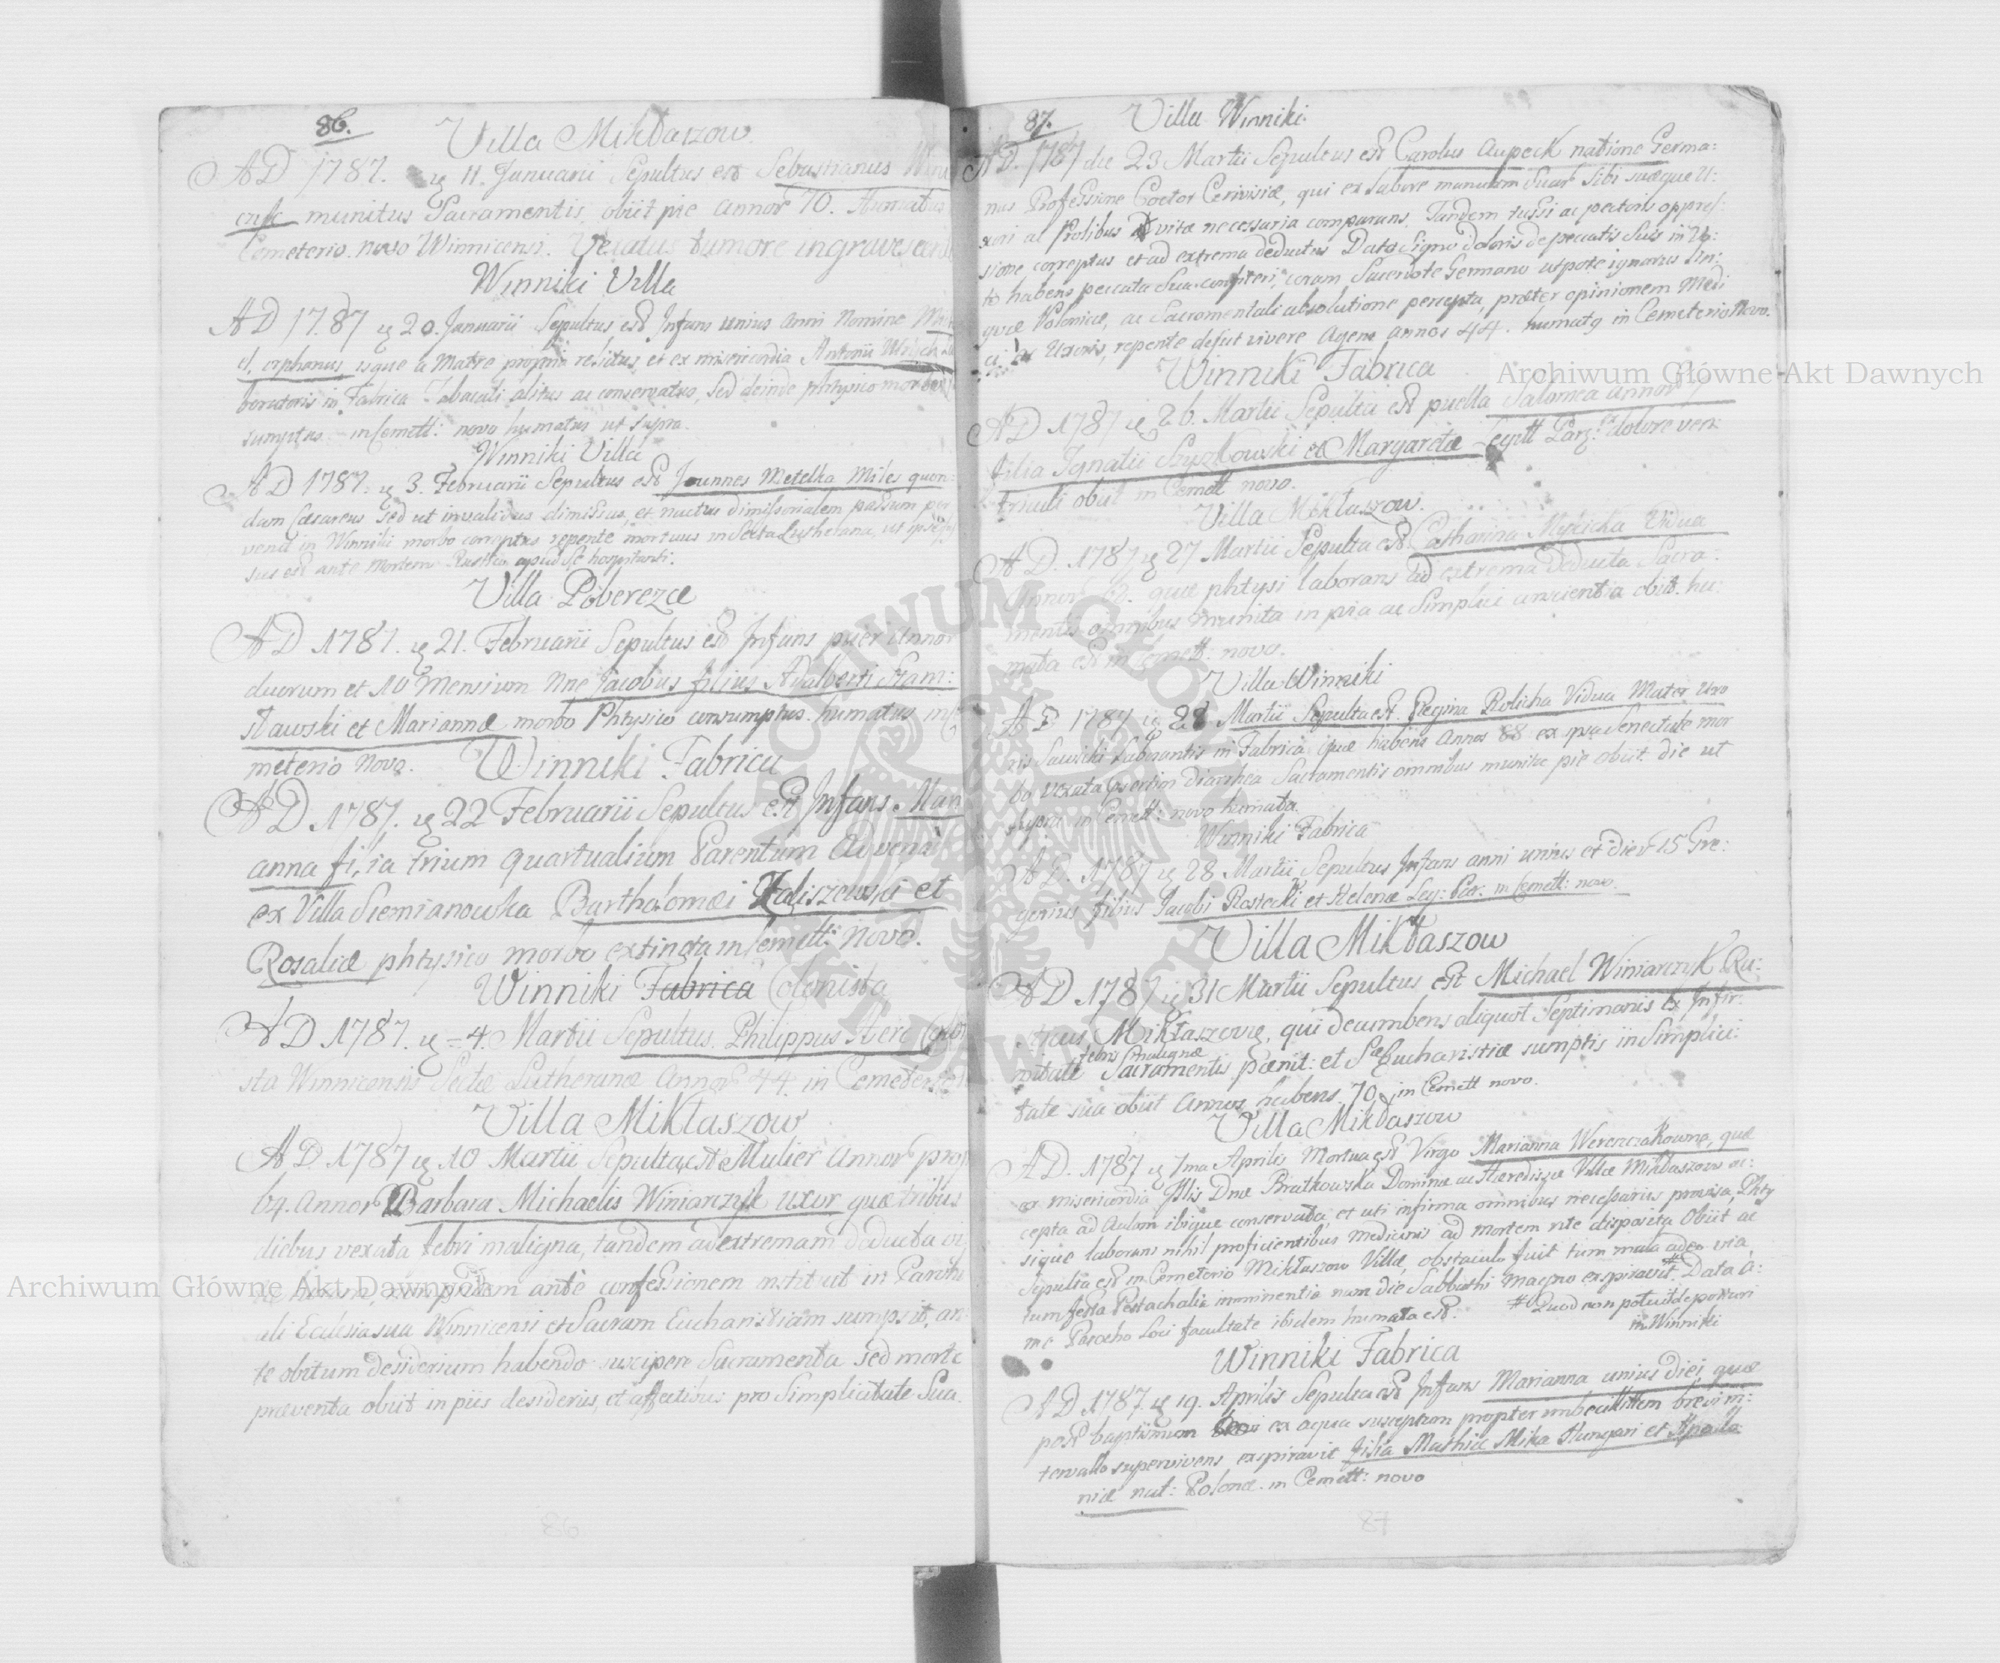 86.
Villa Mikłaszow.
AD 1787. 11. Januarii Sepultus est Sebastianus
munitus Sacramentis, obiit pie annor 70. Humatus
Cemeterio novo Winnicensi. tumore ingravescen
Winniki Villa
AD 1787 20. Januarii Sepultus est Infans unius anni Nomine
orphanus, isque a Matre propria relictus, et ex misericordia Antonii
boratoris in Fabrica Tabacali alitus ac conservatus, sed deinde phtysico morbo
sumptus in Cemett: novo humatus ut supra.
Winniki Villa
AD 1787. 3. Februarii Sepultus est Joannes Metelka Miles quon
dam Cæsareus sed ut invalidus dimissus, et nactus dimissionalem passum per
venit in Winniki morbo correptus repente mortuus in Secta Lutherana, ut
sus est ante mortem apud se hospitanti.
Villa Poberezce
AD 1787. 21. Februarii Sepultus est Infans puer Annor
duorum et 10 Mensium Nne Jacobus filius Adalberti Stani:
sławski et Mariannæ morbo Phtysico consumptus humatus in
meterio Novo.
Winniki Fabrica
AD 1787. 22 Februarii Sepultus est Infans Mari
anna filia trium quartualium Parentum Adveni
ex Villa Siemianowka Bartholomæi Kaliszewski et
Rosaliæ phtysico morbo extincta in Cemett: Novo.
Winniki Fabrica Colonista
AD 1787. 4. Martii Sepultus Philippus Colo
sta Winnicensis Sectæ Lutheranæ Annor 44 in Cemeterio
Villa Mikłaszow
AD 1787 10 Martii Sepulta est Mulier annor
64. Annor Barbara Michaelis Winiarczyk uxor quæ tribus
diebus vexata febri maligna, tandem ad extremam deducta
ante confessionem instituit in Parochi
ali Ecclesia sua Winnicensi et Sacram Eucharistiam sumpsit, an
te obitum desiderium habendo suscipere Sacramenta sed morte
præventa obiit in piis desideriis, et affectibus pro Simplicitate Sua.
86
87.
Villa Winniki.
AD. 1787 die 23 Martii Sepultus est Carolus Aupeck natione Germa:
nus Professione Coctor Cerivisiæ, qui ex labore manuum Suar Sibi suæque U:
xori ac Prolibus vitæ necessaria comparans, Tandem tussi ac pectoris oppres:
sione correptus et ad extrema deductus Dato Signo doloris de peccatis Suis in
to habens peccata Sua confiteri coram Sacerdote Germano utpote ignarus lin:
guæ Polonicæ, ac Sacramentali absolutione percepta, præter opinionem Medi
ci ac Uxoris, repente desiit vivere Agens annos 44. humatg in Cemeterio Novo.
Winniki Fabrica
AD 1787 26. Martii Sepulta est puella Salomea annor
filia Ignatii et Margarethæ dolore ven:
triculi obiit in Cemett novo.
Villa Mikłaszow.
AD. 1787 27 Martii Sepulta est Catharina Vidua
Annor quæ phtysi laborans ad extrema deducta Sacra:
mentis omnibus munita in pia ac Simplici conscientia obiit. hu:
mata est in Cemett: novo.
Villa Winniki
AD 1787 28 Martii Sepulta est Regina Vidua Mater
Sawicki laborantis in Fabrica quæ habens Annos 88 ex ipsa Senectute mor
bo vexata diarrhea Sacramentis omnibus munita pie obiit die ut
supra in Cemett: novo humata
Winniki Fabrica
AD. 1787 28 Martii Sepultus Infans anni unius et dier 15 Gre:
gorius filius Jacobi et Helenæ Leg: Par: in Cemett: novo.
Villa Mikłaszow
AD 1787 31 Martii Sepultus est Michael Winiarczyk Ru:
sticus Mikłaszoviæ, qui decumbens aliquot Septimanis ex Infir:
mitate febris malignæ Sacramentis pœnit: et Sæ Eucharistiæ sumptis in Simplici:
tate sua obiit Annos habens 70. in Cemett novo.
Villa Mikłaszow
AD. 1787 1ma Aprilis Mortua est Virgo Marianna quæ
ex misericordia Dnæ Bratkowska Dominæ ac Hæredissæ Villæ Mikłaszow ac:
cepta ad Aulam ibique conservata, et uti infirma omnibus necessariis provisa, Phty
sique laborans nihil proficientibus medicinis ad mortem rite disposita Obiit ac
Sepulta est in Cemeterio Mikłaszow Villæ, obstaculo fuit tum mala adeo via
tum festa Paschalia imminentia nam die Sabbathi magno expiravit # Data a
me Parocho Loci facultate ibidem humata est. # Quod non potuit deportari
in Winniki
Winniki Fabrica
AD 1787 19. Aprilis Sepulta est Infans Marianna unius diei, quæ
post baptismum ex aqua susceptum propter imbecillitatem brevi in:
tervallo supervivens expiravit filia Mathiæ Mika Hungari et Apollo
niæ nat: Polonæ. in Cemett: novo
87
Archiwum Główne Akt Dawnych
Archiwum Główne Akt Dawnych
ARCHIWUM GŁÓWNE AKT DAWNYCH